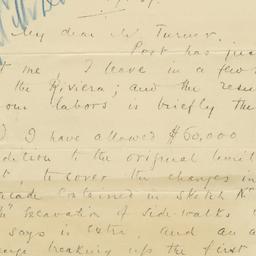 My dear Mr Turner.
Post has jus
t me I leave in a few
the Riviera; and the resu
our labors is briefly the
I have allowed $60,000
dition to the original limit
t, to cover the changes in
acade contained in Sketch N
Excavation of side-walks
says is Extra, and an a
breaking up the first